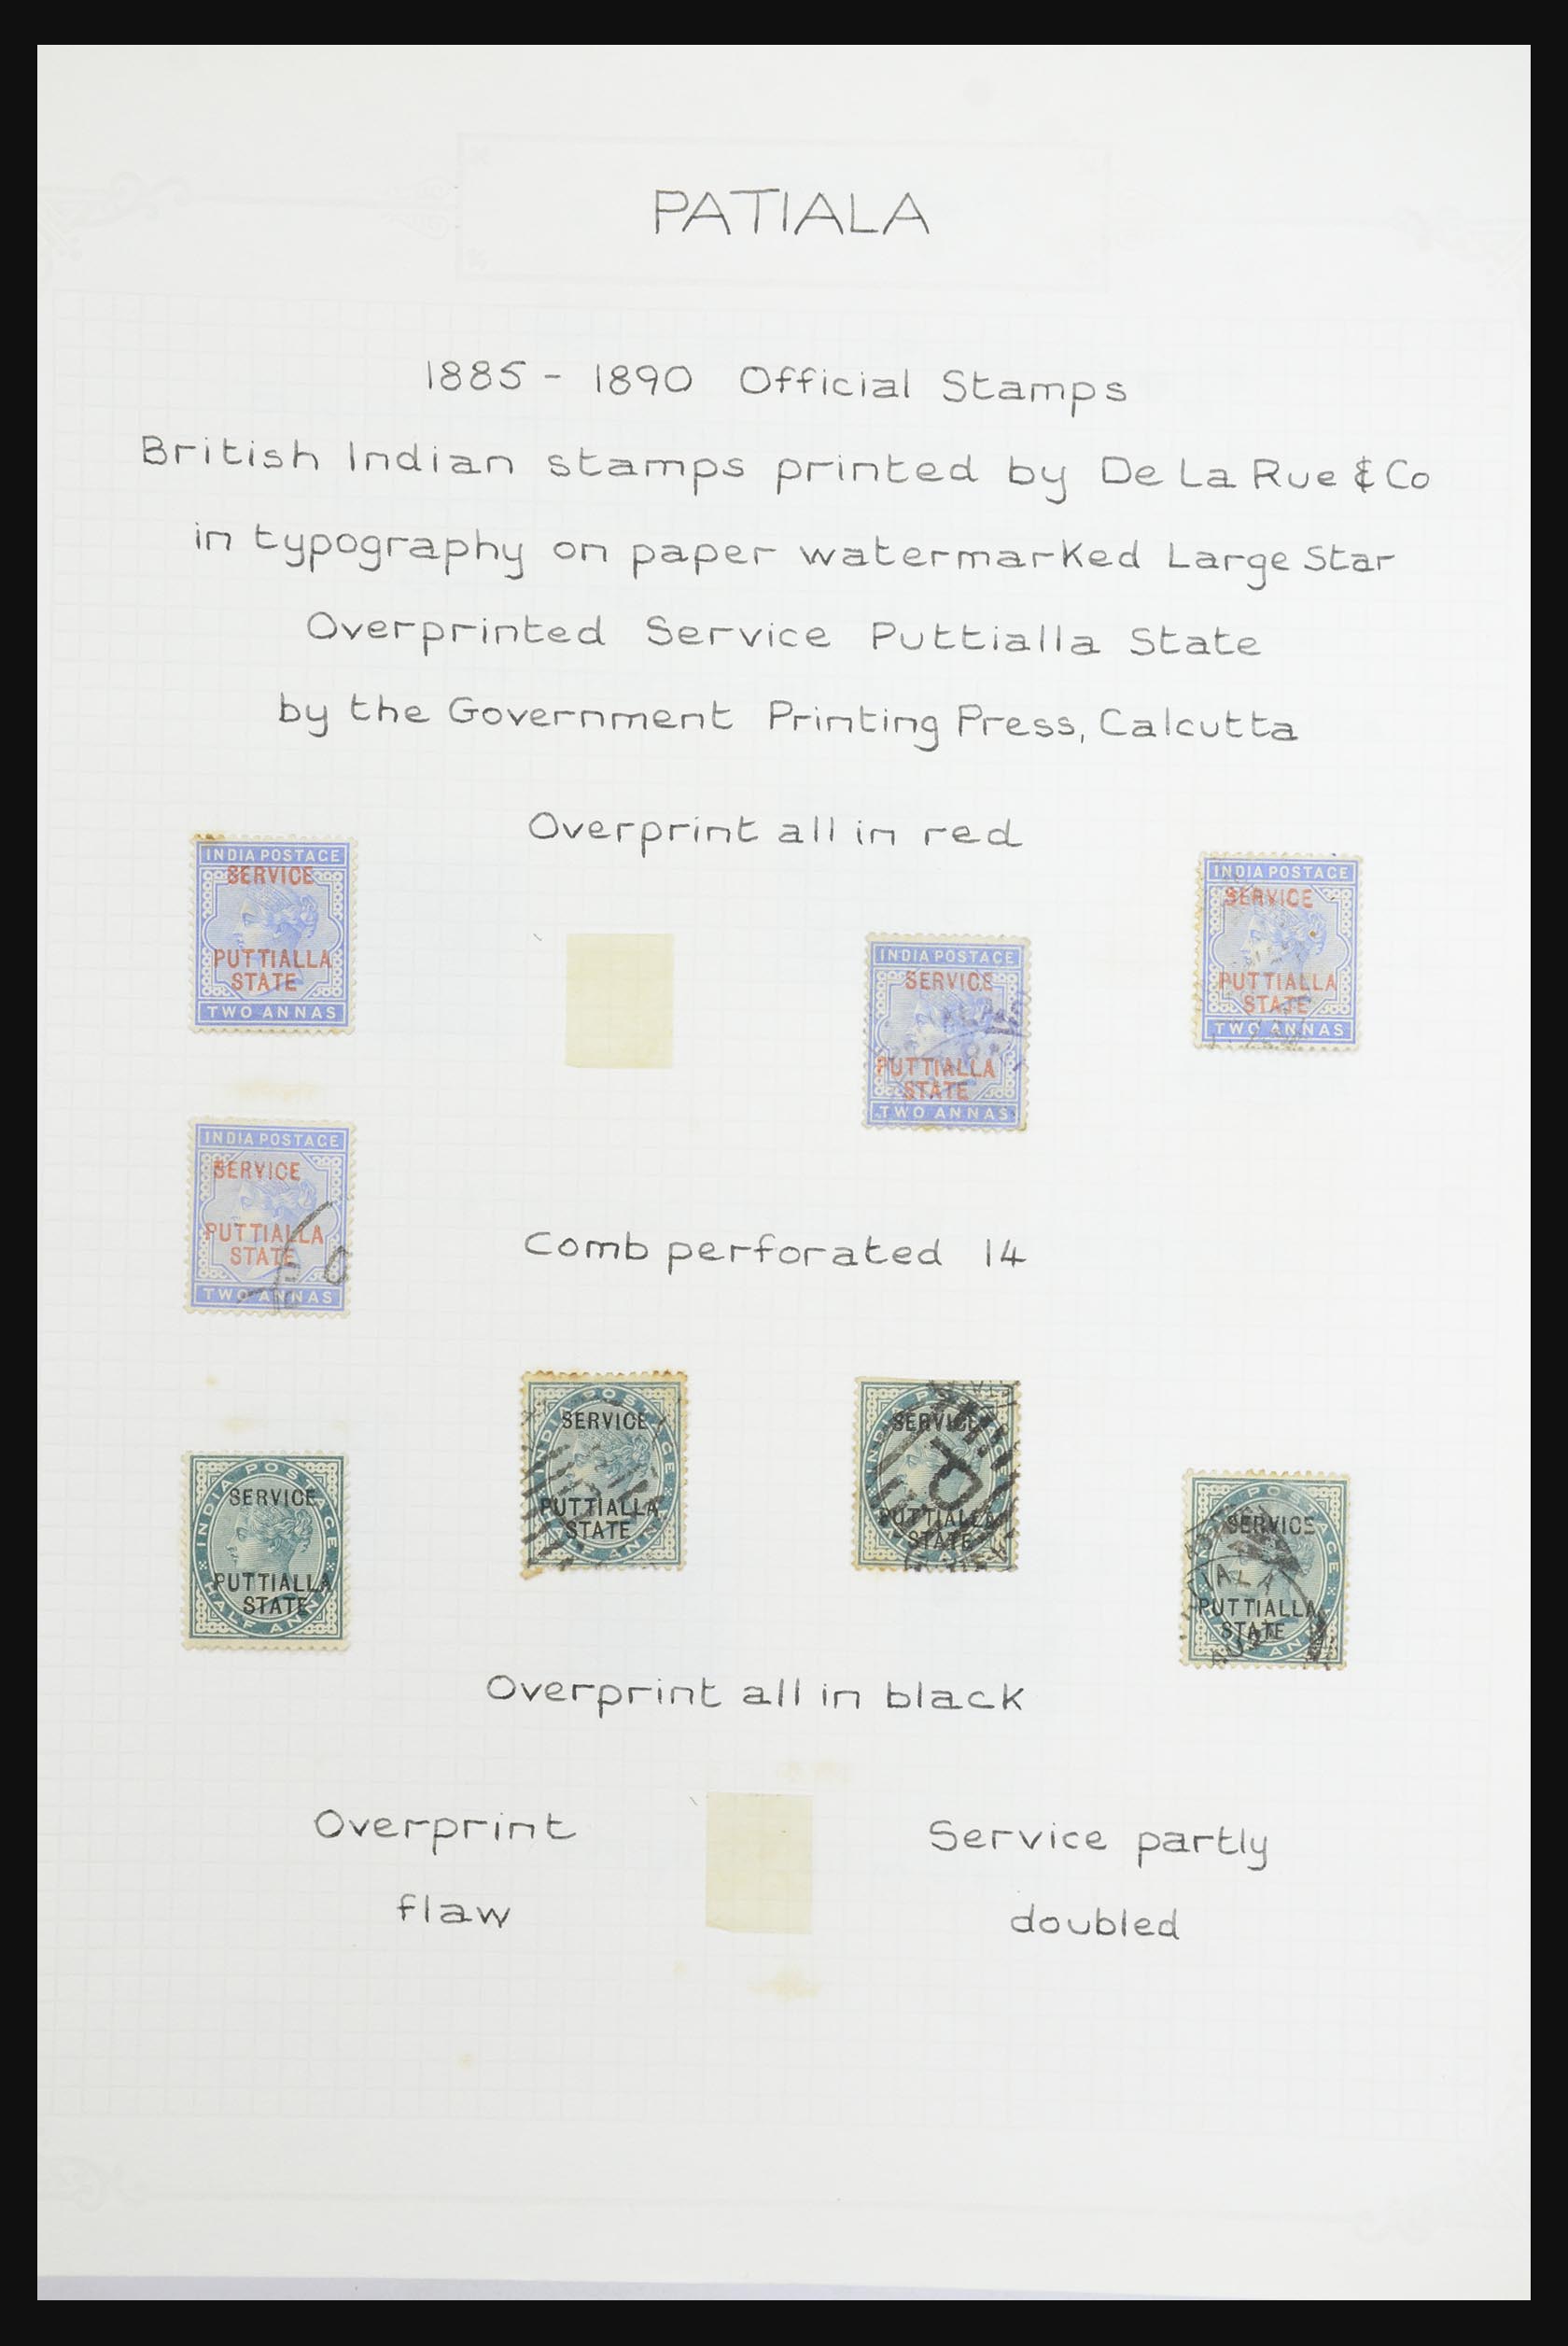 PATIALA
1885 - 1890 Official Stamps
British Indian stamps printed by De La Rue & Co
in typography on paper watermarked Large Star
Overprinted Service Puttialla State
by the Government Printing Press, Calcutta
Overprint all in red
INDIA POSTAGE
SERVICE
PUTTIALLA
STATE
TWO ANNAS
INDIA POSTAGE
SERVICE
PUTTIALLA
STATE
TWO ANNAS
INDIA POSTAGE
SERVICE
PUTTIALLA
STATE
TWO ANNAS
INDIA POSTAGE
SERVICE
PUTTIALLA
STATE
TWO ANNAS
Comb perforated 14
INDIA POSTAGE
SERVICE
PUTTIALLA
STATE
HALF ANNA
INDIA POSTAGE
SERVICE
PUTTIALLA
STATE
SERVICE
PUTTIALLA
STATE
SERVICE
PUTTIALLA
STATE
Overprint all in black
Overprint
flaw
Service partly
doubled